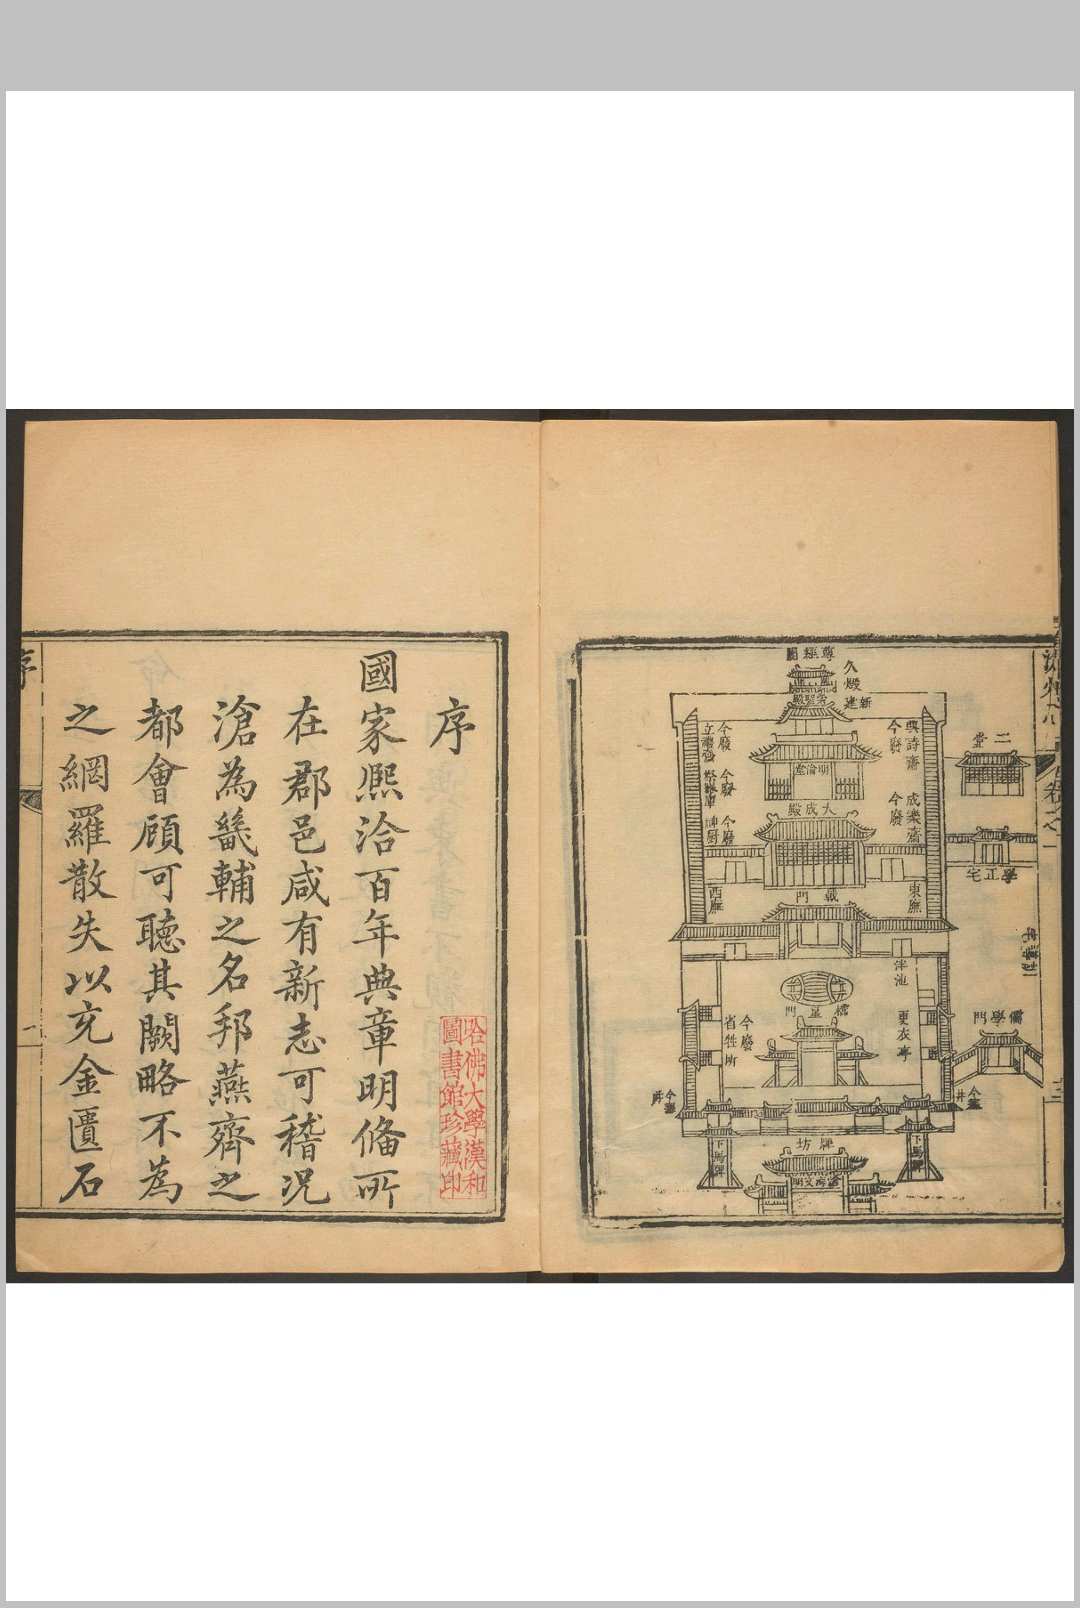 序
國家熈洽百年典章明俻所
在郡邑咸有新志可稽況
滄為畿輔之名邦燕齊之
都會顧可聽其闕略不為
之網羅散失以充金匱石
哈佛大學漢和
圖書館珍藏印
序
一
尊經閣
久燬
新建
明倫堂
大成殿
戟門
東廡
西廡
興詩齋
今廢
成樂齋
今廢
今廢
今廢
神厨
今廢
泮池
櫺星門
更衣亭
省牲所
今廢
二堂
學正宅
儒學門
牌坊
下馬牌
下馬牌
井